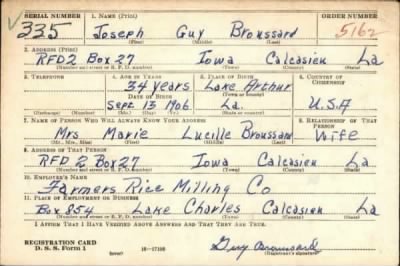 SERIAL NUMBER 1. NAME (Print) ORDER NUMBER
335 Joseph Guy Broussard 5162
(First) (Middle) (Last)
2. ADDRESS (Print)
RFD2 Box 27 Iowa Calcasieu La
(Number and street or R. F. D. number) (Town) (County) (State)
3. TELEPHONE 4. AGE IN YEARS 5. PLACE OF BIRTH 6. COUNTRY OF CITIZENSHIP
34 Years Lake Arthur
DATE OF BIRTH (Town or county)
Sept. 13 1906 La. U.S.A
(Exchange) (Number) (Mo.) (Day) (Yr.) (State or country)
7. NAME OF PERSON WHO WILL ALWAYS KNOW YOUR ADDRESS 8. RELATIONSHIP OF THAT PERSON
Mrs Marie Lucille Broussard Wife
(Mr., Mrs., Miss) (First) (Middle) (Last)
9. ADDRESS OF THAT PERSON
RFD 2 Box 27 Iowa Calcasieu La
(Number and street or R. F. D. number) (Town) (County) (State)
10. EMPLOYER'S NAME
Farmers Rice Milling Co
11. PLACE OF EMPLOYMENT OR BUSINESS
Box 854 Lake Charles Calcasieu La
(Number and street or R. F. D. number) (Town) (County) (State)
I AFFIRM THAT I HAVE VERIFIED ABOVE ANSWERS AND THAT THEY ARE TRUE.
REGISTRATION CARD
D. S. S. Form 1 (over) 16—17105 Guy Broussard
(Registrant's signature)